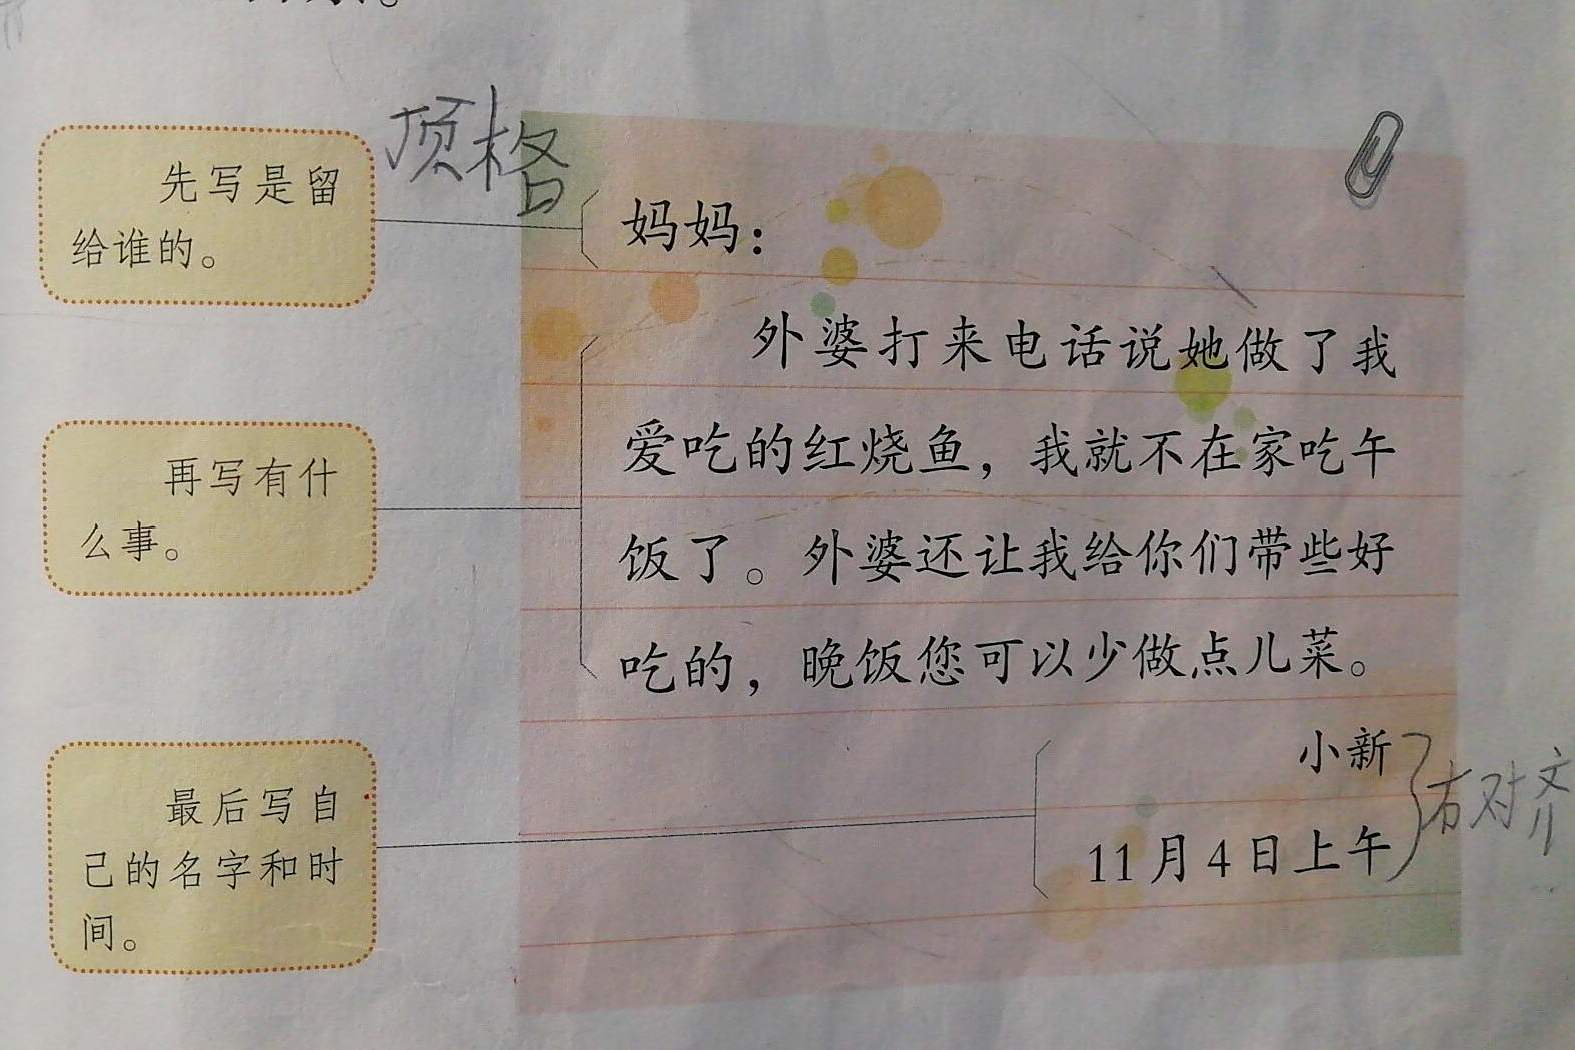 顶格
先写是留
给谁的。
妈妈：
外婆打来电话说她做了我
爱吃的红烧鱼，我就不在家吃午
饭了。外婆还让我给你们带些好
吃的，晚饭您可以少做点儿菜。
再写有什
么事。
小新
11月4日上午
右对齐
最后写自
己的名字和时
间。